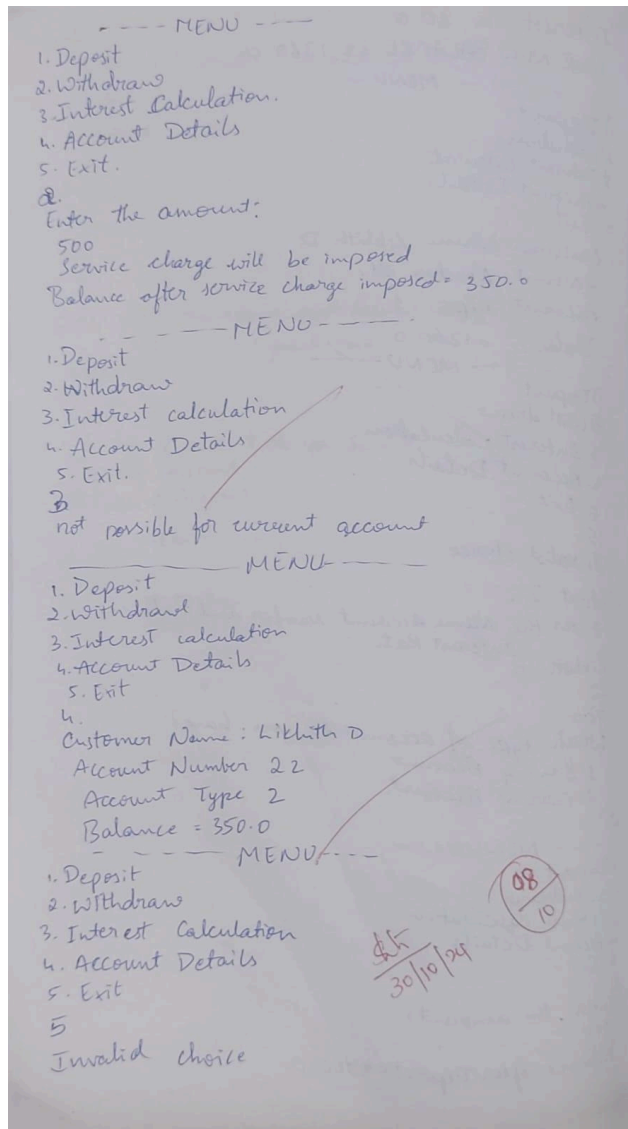 - - - - MENU - - - -
1. Deposit
2. Withdraw
3. Interest Calculation.
4. Account Details
5. Exit.
2.
Enter the amount:
500
Service charge will be imposed
Balance after service charge imposed = 350.0
- - - - MENU - - - -
1. Deposit
2. Withdraw
3. Interest calculation
4. Account Details
5. Exit.
3
not possible for current account
- - - - MENU - - - -
1. Deposit
2. Withdrawl
3. Interest calculation
4. Account Details
5. Exit
4.
Customer Name : Likhith D
Account Number 22
Account Type 2
Balance = 350.0
- - - - MENU - - -
1. Deposit
2. Withdraw
3. Interest Calculation
4. Account Details
5. Exit
5
Invalid choice
08
10
30/10/24